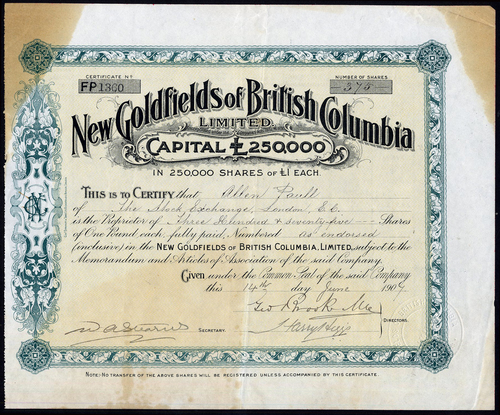 CERTIFICATE No
NUMBER OF SHARES
FP1360
375
New Goldfields of British Columbia
LIMITED
CAPITAL £250,000
IN 250,000 SHARES OF £1 EACH.
THIS IS TO CERTIFY that Allen Paull
of The Stock Exchange, London, E.C.
is the Proprietor of Three Hundred & seventy five Shares
of One Pound each, fully paid, Numbered as endorsed
(inclusive) in the NEW GOLDFIELDS OF BRITISH COLUMBIA, LIMITED, subject to the
Memorandum and Articles of Association of the said Company.
Given under the Common Seal of the said Company
this 14th day June 190
DIRECTORS.
SECRETARY.
NOTE:-NO TRANSFER OF THE ABOVE SHARES WILL BE REGISTERED UNLESS ACCOMPANIED BY THIS CERTIFICATE.